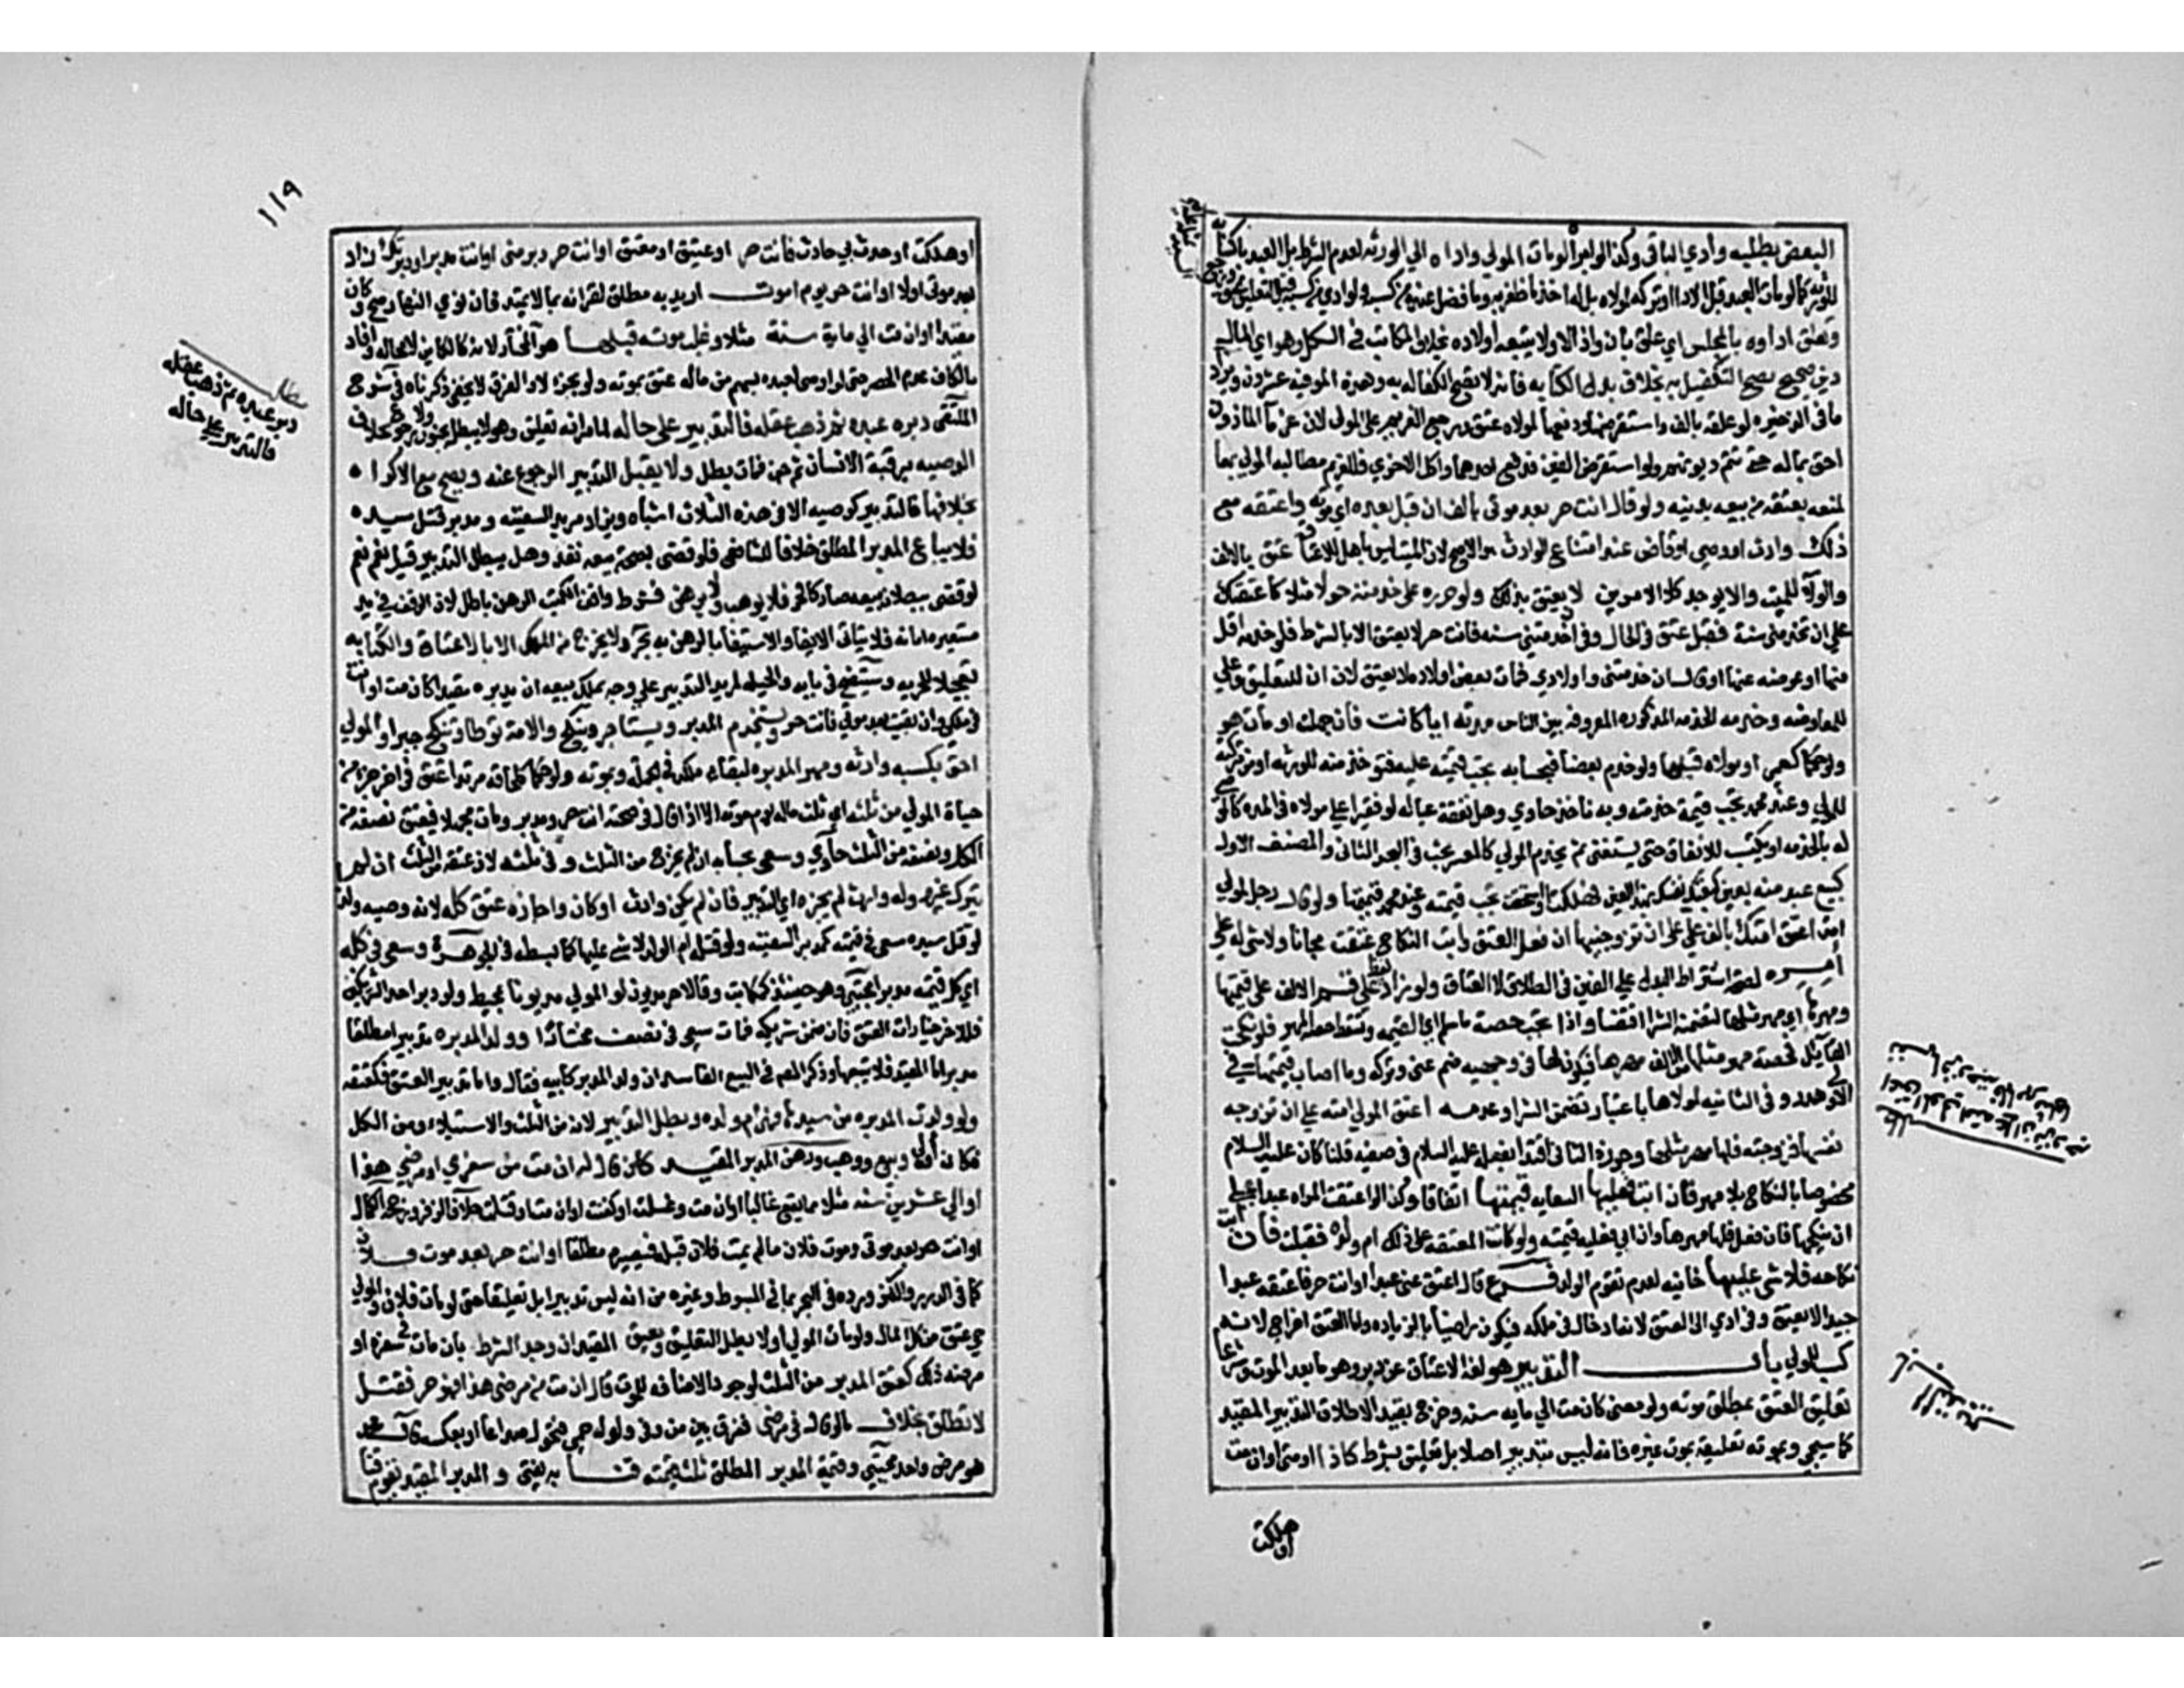 البعض بطلبه وأدي الباقي وكذا لو ابرأ لومات المولي واداه الي الورثه لعدم الشرط بل العبد باكسابه
للورثه كما لومات العبد قبل الاداء وتركه لمولاه بل له اخذ ما ظفر به وما فضل عنده من كسبه ولو ادي من كسبه قبل التعليق عتق
وتعلق اداوه بالمجلس اي علق بان واذا لا ولا يتبعه أولاده بخلاف المكاتب في الكل وهو اي المال
دين صحيح يصح التكفيل به بخلاف بدل الكتابه فانه لا تصح الكفاله به وهذه الموفيه عشرون ويزاد
ما في الذخيره لو علقه بالف واستقرضها ودفعها لمولاه عتق ورجع الغريم علي المولي لان غرماء الماذون
احق بماله حتي تتم ديونهم ولو استقرض الفين فدفع احدهما واكل الاخري فللغريم مطالبه المولي بهما
لمنعه بعتقه من بيعه بدينه ولو قال انت حر بعد موتي بالف ان قبل بعده اي موته واعتقه مع
ذلك وارث او وصي او قاض عند امتناع الوارث هو الاصح لان الميت ليس باهل للاعتاق عتق بالالف
والولاء للميت والا يوجد كلا الامرين لا يعتق بذلك ولو حرره علي خدمته حولا مثلا كاعتقتك
علي ان تخدمني سنة فقبل عتق في الحال وفي ان خدمتني سنه فانت حر لا يعتق الا بالشرط فلو خدمه اقل
منها او عوضه عنها او قال ان خدمتني واولادي فمات بعض اولاده لا يعتق لان ان للتعليق وعلي
للمعاوضه وخدمه الخدمه المذكوره المعروفه بين الناس مدته ايا كانت فان جهلت او مات هو
ولو حكما كعمي او مولاه قبلها ولو خدم بعضا فبحسابه تجب قيمته عليه فتؤخذ منه للورثه او من تركته
للمولي وعند محمد تجب قيمة خدمته وبه ناخذ حاوي وهل نفقة عياله لو فقيرا علي مولاه في المده كالموصي
له بالخدمه او يكتسب للانفاق حتي يستغني ثم يخدم المولي كالمعسر بحث في البحر الثاني والمصنف الاول
كبيع عبد منه بعين كبعتك نفسك بهذا العين فهلكت او استحقت تجب قيمته وعند محمد قيمتها ولو قال رجل لمولي
امة اعتق امتك بالف علي علي ان تزوجنيها ان فعل العتق وابت النكاح عتقت مجانا ولا شي له علي
أمره لصحة اشتراط البدل علي الغير في الطلاق لا العتاق ولو زاد لفظ عني قسم الالف علي قيمتها
ومهرها اي مهر مثلها لتضمنه الشرا اقتضاء واذا تجب حصة ما سلم اي القيمه وتسقط حصة المهر فلو نكحت
القايل فحصة مهر مثلها من الالف مهرها فيكون لها في وجهيه ضم عني وتركه وما اصاب قيمتها في
الاولي هدر وفي الثانيه لمولاها باعتبار تضمن الشراء وعدمه اعتق المولي امته علي ان تزوجه
نفسها فزوجته فلها مهر مثلها وجوزه الثاني اقتداء بفعله عليه السلام في صفيه قلنا كان عليه السلام
مخصوصا بالنكاح بلا مهر فان ابت فعليها السعايه قيمتها اتفاقا وكذا لو اعتقت المراه عبدا علي
ان ينكحها فان فعل فلها مهرها وان ابي فعليه قيمته ولو كانت المعتقه علي ذلك ام ولده فقبلت فان ابت
نكاحه فلا شي عليها خانيه لعدم تقوم الولد فـــرع قال اعتق عني عبدا وانت حر فاعتقه عبدا
جيدا لا يعتق وفي ادي الي العتق لانه ادخال في ملكه فيكون راضيا بالزياده واما العتق اخراج لانه
كسب المولي بـــاب التدبير هو لغة الاعتاق عن دبر وهو ما بعد الموت وشرعا
تعليق العتق بمطلق موته ولو معني كان مت الي مايه سنه وخرج بقيد الاطلاق التدبير المقيد
كما سيجي وبموته تعليقه بموت غيره فانه ليس بتدبير اصلا بل تعليق بشرط كاذا او متي او ان مت
او هلكت
اعتق المولي امته علي ان تزوجه
نفسها
١١٩
او هلكت او حدث بي حادث فانت حر او عتيق او معتق او انت حر دبر مني او انت مدبر او دبرتك زاد
بعد موتي اولا او انت حر يوم اموت اريد به مطلق لقرانه بما لا يمتد فان نوي النهار صح وكان
مقيدا او ان مت الي ماية سنة مثلا وغلب موته قبلها هو المختار لانه كالكاين لا محاله وافاد
بالكاف عدم الحصر حتي لو اوصي لعبده بسهم من ماله عتق بموته ولو بجزء لا والفرق لا يخفي ذكرناه في شرح
الملتقي دبره عبده ثم ذهب عقله فالتدبير علي حاله لما مر انه تعليق وهو لا يبطل بجنون ولا رجوع بخلاف
الوصيه برقبة الانسان ثم جن فمات بطل ولا يقبل التدبير الرجوع عنه ويصح مع الاكراه
بخلافها فالتدبير كوصيه الا في هذه الثلاث اشباه ويزاد مدبر السفيه ومدبر قتل سيده
فلا يباع المدبر المطلق خلافا للشافعي فلو قضي بصحة بيعه نفذ وهل يبطل التدبير قيل نعم نعم
لو قضي ببطلان بيعه صار كالحر فلا يوهب ولا يرهن فشرط واقف الكتب الرهن باطل لان الوقف في يد
مستعيره امانه فلا يتاتي الايفا والاستيفا بالرهن به بحر ولا يخرج من الملك الا بالاعتاق والكتابه
تعجيلا للحريه وستتضح في بابه والحيله لمريد التدبير علي وجه يملك بيعه ان يدبره مقيدا كان مت وانت
في ملكي وان بقيت بعد موتي فانت حر ويستخدم المدبر ويستاجر وينكح والامة توطأ وتنكح جبرا والمولي
احق بكسبه وارثه ومهر المدبره لبقاء ملكه في الجمله وبموته ولو حكما كلحاقه مرتدا عتق في اخر جزء من
حياة المولي من ثلثه اي ثلث ماله يوم موته الا اذا قال في صحته انت حر ومدبر ومات مجهلا فيعتق نصفه من
الكل ونصفه من الثلث حاوي وسعي بحسابه ان لم يخرج من الثلث وفي ثلثيه لان عتقه من الثلث ان لم
يترك غيره وله وارث لم يجزه اي التدبير فان لم يكن وارث او كان واجازه عتق كله لانه وصيه ولذا
لو قتل سيده سعي في قيمته كمدبر السفيه ولو قتلته ام الولد لا شي عليها كما بسطه في الجوهرة وسعي في كله
اي كل قيمته مدبرا مجتبي وهو حينئذ كمكاتب وقالا حر مديون لو المولي مديونا بمحيط ولو دبر احد الشريكين
فللاخر خيارات العتق فان ضمن شريكه فمات سعي في نصفه مختارا وولد المدبره تدبيرا مطلقا
مدبر اما المقيد فلا يتبعها وذكر المصنف في البيع الفاسد ان ولد المدبر كابيه فقال واما تدبير العتق فكعتقه
ولو ولدت المدبره من سيدها فهي ام ولده وبطل التدبير لانه من الثلث والاستيلاد من الكل
فكان أولي وبيع ووهب ورهن المدبر المقيد كان قال له ان مت من سفري او مرضي هذا
او الي عشرين سنه مثلا مما يقع غالبا او ان مت وغسلت او كفنت او ان مت او قتلت خلافا لزفر ورجحه الكمال
او انت حر بعد موتي وموت فلان ما لم يمت فلان قبله فيصير مطلقا او انت حر بعد موت فلان
كما في الدرر والكنز ورده في البحر بما في المبسوط وغيره من انه ليس تدبيرا بل تعليقا حتي لو مات فلان والمولي
حي عتق من كل المال ولو مات المولي اولا بطل التعليق ويعتق المقيد ان وجد الشرط بان مات في سفره او
مرضه ذلك كعتق المدبر من الثلث لوجود الاضافه للموت قال ان مت من مرضي هذا فهو حر فقتل
لا يعتق بخلاف ما لو قال في مرضي ففرق بين من وفي ولو له حمي فتحول صداعا او بعكسه قال محمد
هو مرض واحد مجتبي وقيمة المدبر المطلق ثلثا قيمته قنا به يفتي والمدبر المقيد تقوم قنا
مطلب
دبر عبده ثم ذهب عقله
فالتدبير علي حاله